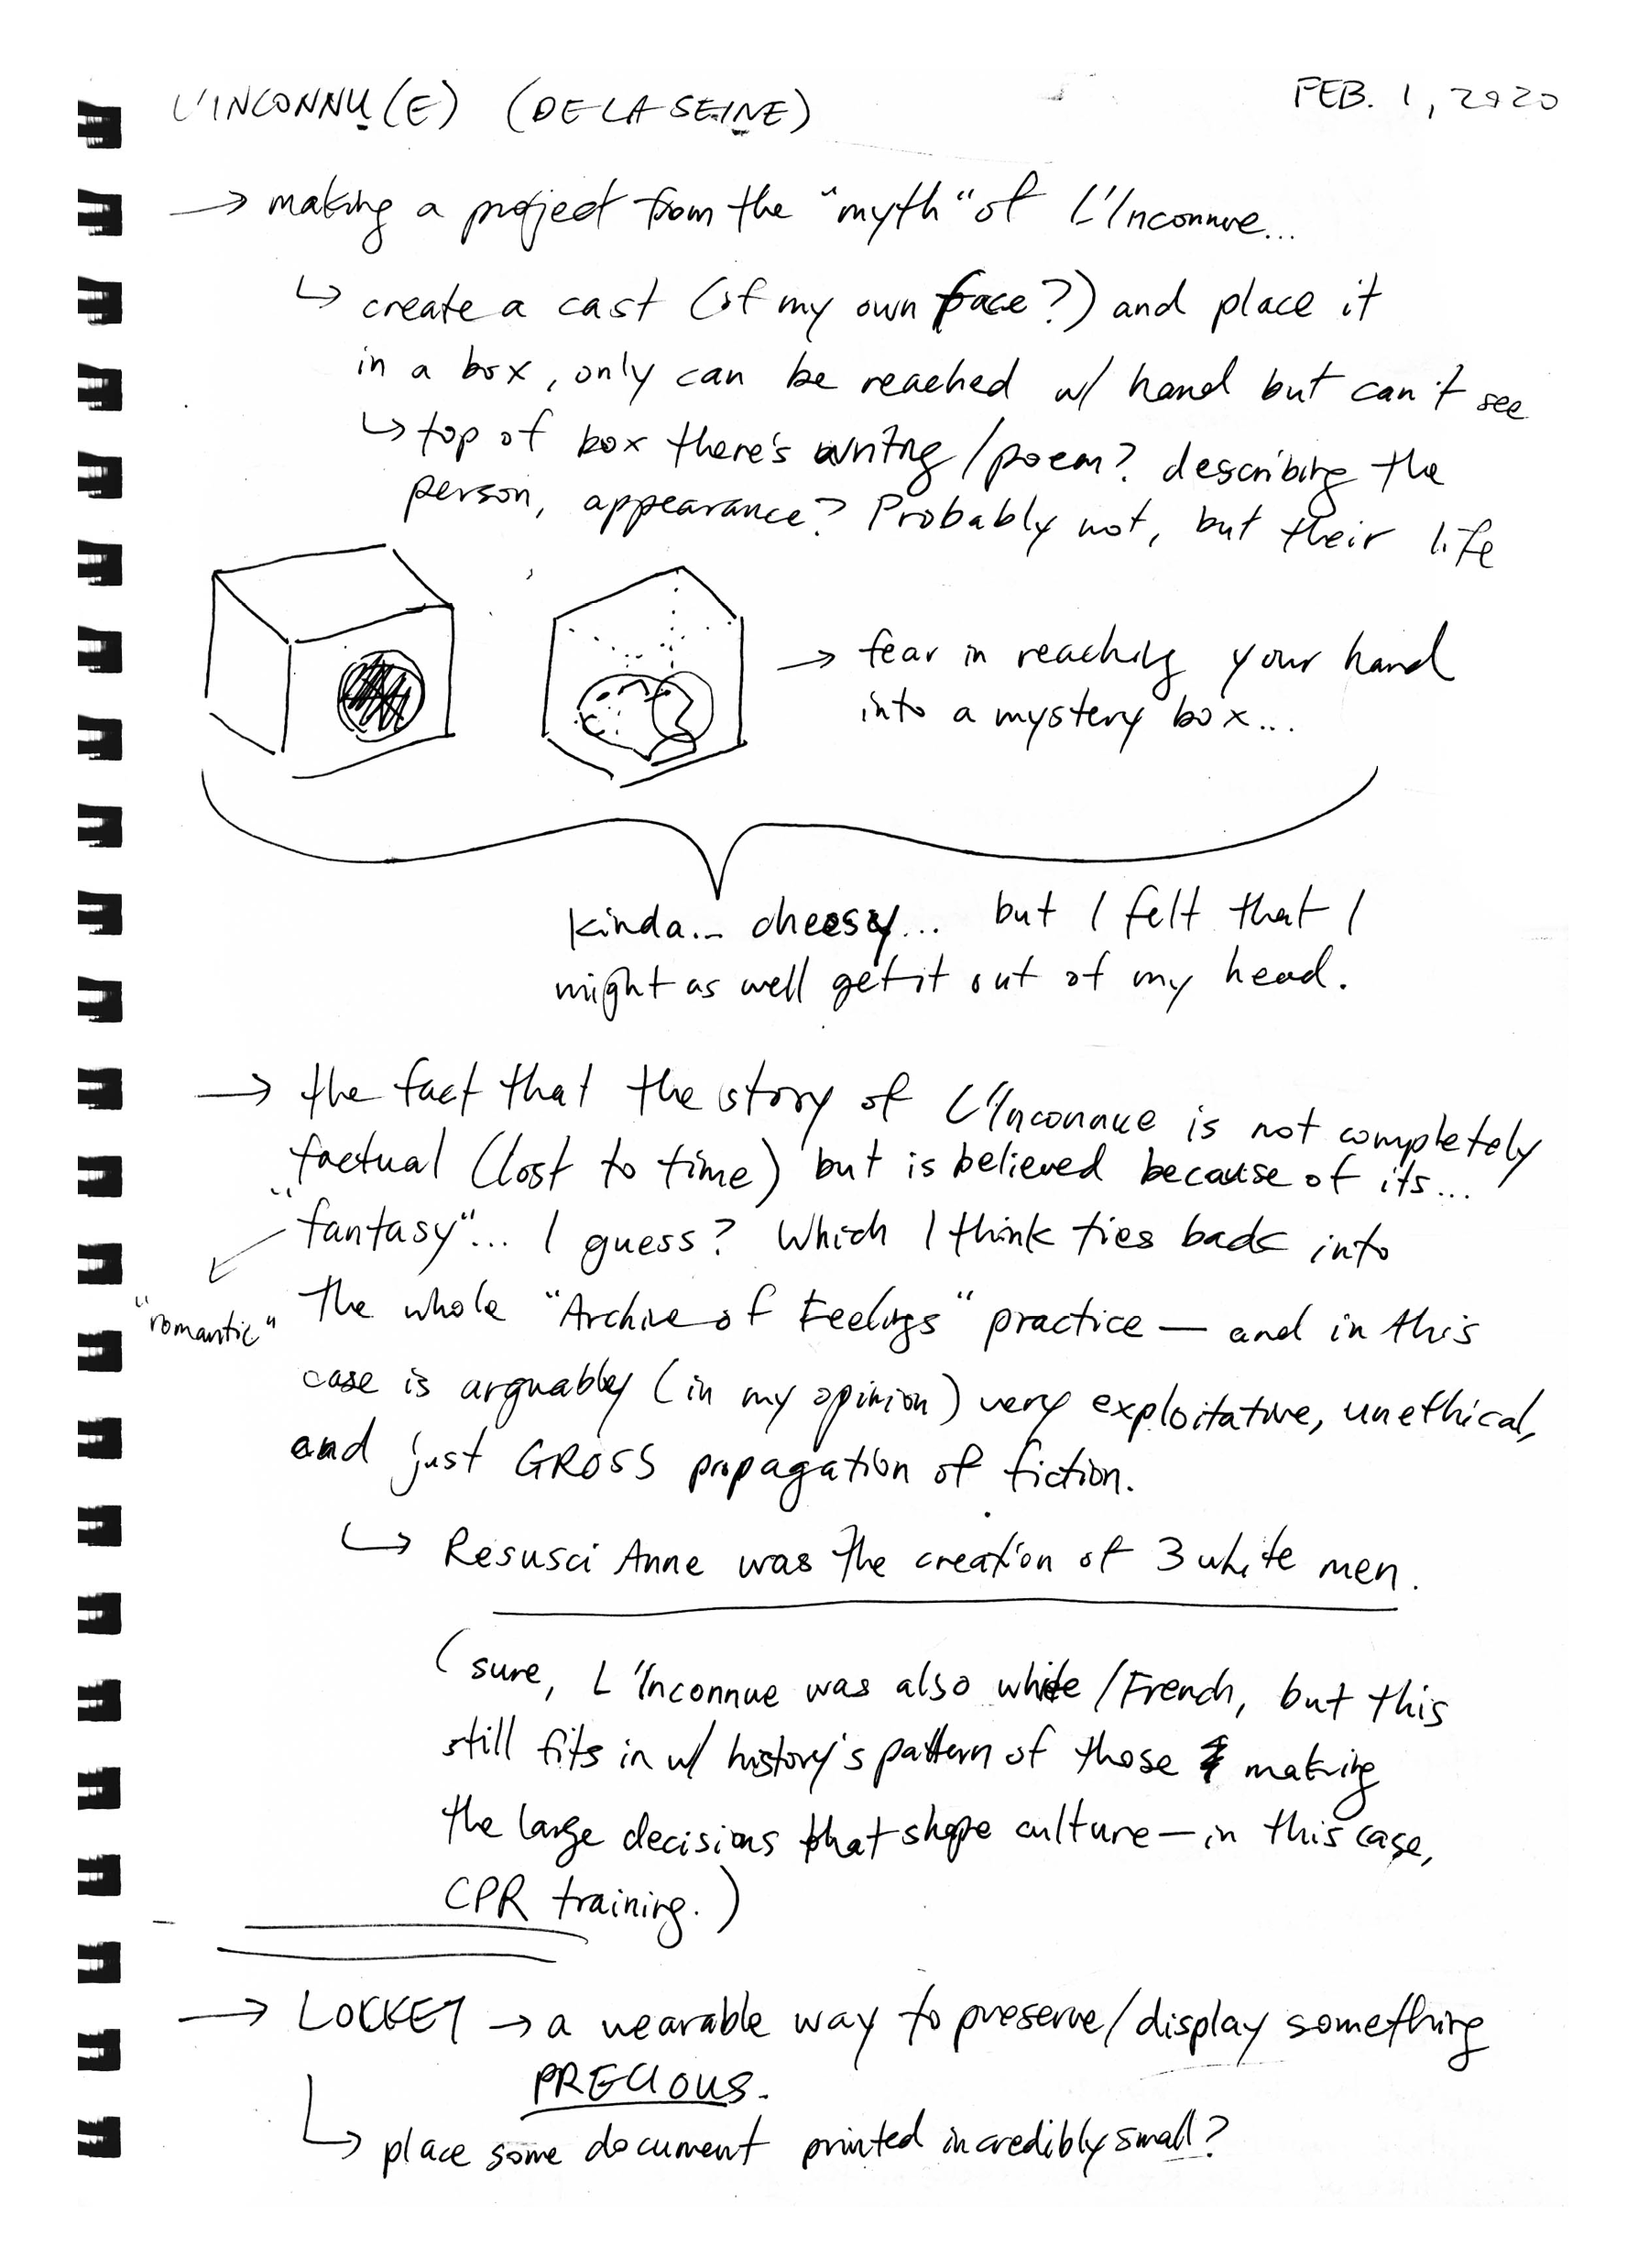 L'INCONNU(E) (DE LA SEINE)
FEB. 1, 2020
→ making a project from the "myth" of L'Inconnue...
↳ create a cast (of my own face?) and place it
in a box, only can be reached w/ hand but can't see
↳ top of box there's writing/poem? describing the
person, appearance? Probably not, but their life
→ fear in reaching your hand
into a mystery box...
kinda... cheesy... but I felt that I
might as well get it out of my head.
→ the fact that the story of L'Inconnue is not completely
factual (lost to time) but is believed because of its...
"fantasy"... I guess? Which I think ties back into
"romantic"
the whole "Archive of Feelings" practice — and in this
case is arguably (in my opinion) very exploitative, unethical,
and just GROSS propagation of fiction.
↳ Resusci Anne was the creation of 3 white men.
(sure, L'Inconnue was also white/French, but this
still fits in w/ history's pattern of those making
the large decisions that shape culture — in this case,
CPR training.)
→ LOCKET → a wearable way to preserve/display something
PRECIOUS.
↳ place some document printed incredibly small?